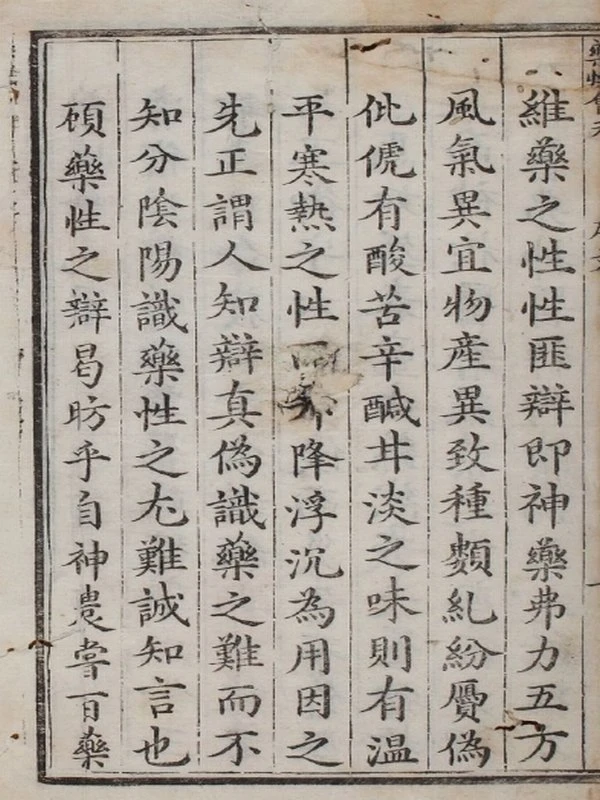 維藥之性性匪辯即神藥弗力五方
風氣異宜物產異致種類糺紛贗偽
佌俿有酸苦辛鹹甘淡之味則有溫
平寒熱之性降浮沉為用因之
先正謂人知辯真偽識藥之難而不
知分陰陽識藥性之尤難誠知言也
頋藥性之辯曷昉乎自神農嘗百藥